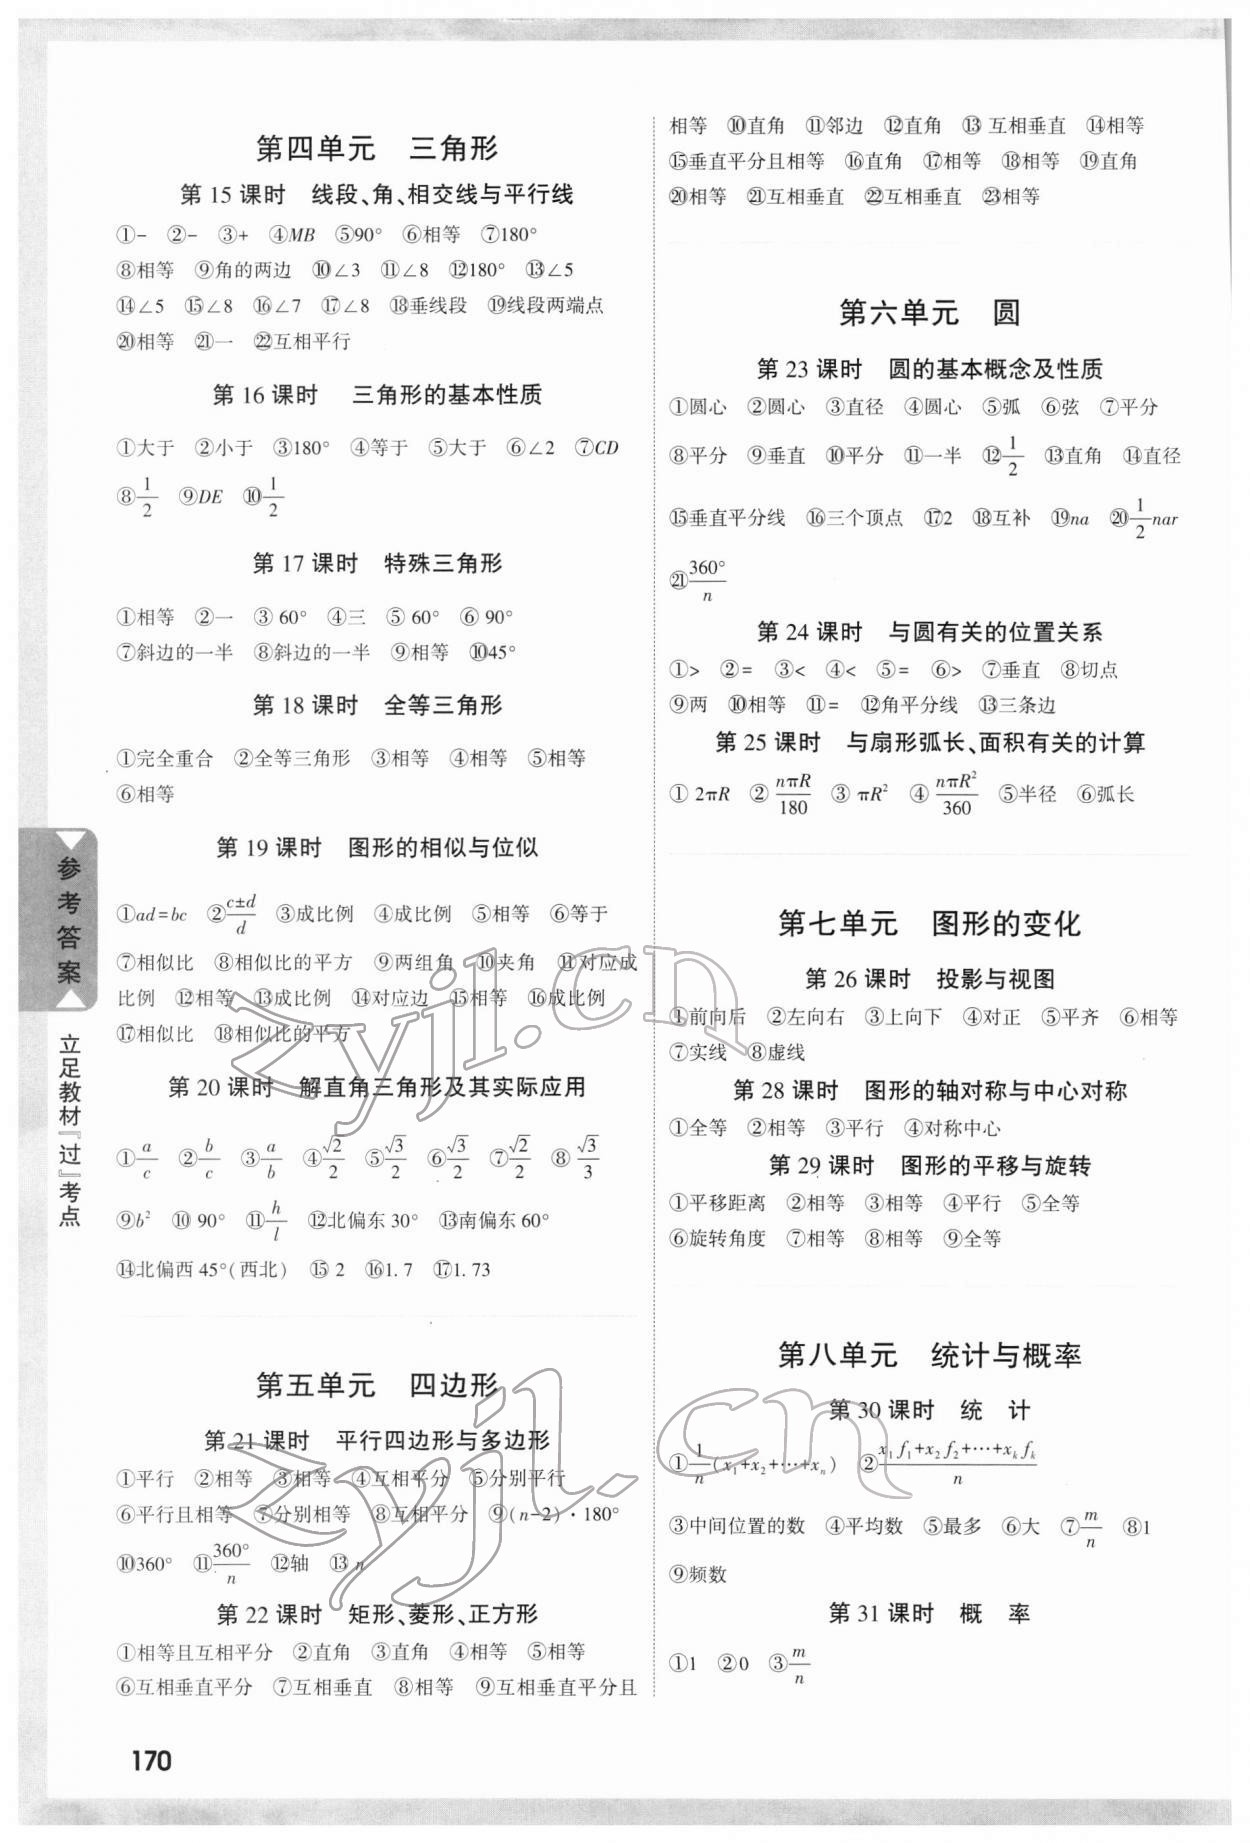 第四单元 三角形
第 15 课时 线段、角、相交线与平行线
①- ②- ③+ ④MB ⑤90° ⑥相等 ⑦180°
⑧相等 ⑨角的两边 ⑩∠3 ⑪∠8 ⑫180° ⑬∠5
⑭∠5 ⑮∠8 ⑯∠7 ⑰∠8 ⑱垂线段 ⑲线段两端点
⑳相等 ㉑一 ㉒互相平行
第 16 课时 三角形的基本性质
①大于 ②小于 ③180° ④等于 ⑤大于 ⑥∠2 ⑦CD
⑧1/2 ⑨DE ⑩1/2
第 17 课时 特殊三角形
①相等 ②一 ③ 60° ④三 ⑤ 60° ⑥ 90°
⑦斜边的一半 ⑧斜边的一半 ⑨相等 ⑩45°
第 18 课时 全等三角形
①完全重合 ②全等三角形 ③相等 ④相等 ⑤相等
⑥相等
第 19 课时 图形的相似与位似
①ad=bc ②(c±d)/d ③成比例 ④成比例 ⑤相等 ⑥等于
⑦相似比 ⑧相似比的平方 ⑨两组角 ⑩夹角 ⑪对应成
比例 ⑫相等 ⑬成比例 ⑭对应边 ⑮相等 ⑯成比例
⑰相似比 ⑱相似比的平方
第 20 课时 解直角三角形及其实际应用
①a/c ②b/c ③a/b ④√2/2 ⑤√3/2 ⑥√3/2 ⑦√2/2 ⑧√3/3
⑨b² ⑩ 90° ⑪h/l ⑫北偏东 30° ⑬南偏东 60°
⑭北偏西 45°(西北) ⑮ 2 ⑯1.7 ⑰1.73
第五单元 四边形
第 21 课时 平行四边形与多边形
①平行 ②相等 ③相等 ④互相平分 ⑤分别平行
⑥平行且相等 ⑦分别相等 ⑧互相平分 ⑨(n-2)·180°
⑩360° ⑪360°/n ⑫轴 ⑬ n
第 22 课时 矩形、菱形、正方形
①相等且互相平分 ②直角 ③直角 ④相等 ⑤相等
⑥互相垂直平分 ⑦互相垂直 ⑧相等 ⑨互相垂直平分且
相等 ⑩直角 ⑪邻边 ⑫直角 ⑬ 互相垂直 ⑭相等
⑮垂直平分且相等 ⑯直角 ⑰相等 ⑱相等 ⑲直角
⑳相等 ㉑互相垂直 ㉒互相垂直 ㉓相等
第六单元 圆
第 23 课时 圆的基本概念及性质
①圆心 ②圆心 ③直径 ④圆心 ⑤弧 ⑥弦 ⑦平分
⑧平分 ⑨垂直 ⑩平分 ⑪一半 ⑫1/2 ⑬直角 ⑭直径
⑮垂直平分线 ⑯三个顶点 ⑰2 ⑱互补 ⑲na ⑳1/2nar
㉑360°/n
第 24 课时 与圆有关的位置关系
①> ②= ③< ④< ⑤= ⑥> ⑦垂直 ⑧切点
⑨两 ⑩相等 ⑪= ⑫角平分线 ⑬三条边
第 25 课时 与扇形弧长、面积有关的计算
① 2πR ② nπR/180 ③ πR² ④ nπR²/360 ⑤半径 ⑥弧长
第七单元 图形的变化
第 26 课时 投影与视图
①前向后 ②左向右 ③上向下 ④对正 ⑤平齐 ⑥相等
⑦实线 ⑧虚线
第 28 课时 图形的轴对称与中心对称
①全等 ②相等 ③平行 ④对称中心
第 29 课时 图形的平移与旋转
①平移距离 ②相等 ③相等 ④平行 ⑤全等
⑥旋转角度 ⑦相等 ⑧相等 ⑨全等
第八单元 统计与概率
第 30 课时 统 计
①1/n(x₁+x₂+⋯+xₙ) ②(x₁f₁+x₂f₂+⋯+xₖfₖ)/n
③中间位置的数 ④平均数 ⑤最多 ⑥大 ⑦m/n ⑧1
⑨频数
第 31 课时 概 率
①1 ②0 ③m/n
参考答案
立足教材『过』考点
170
zyjl.cn
zyjl.cn